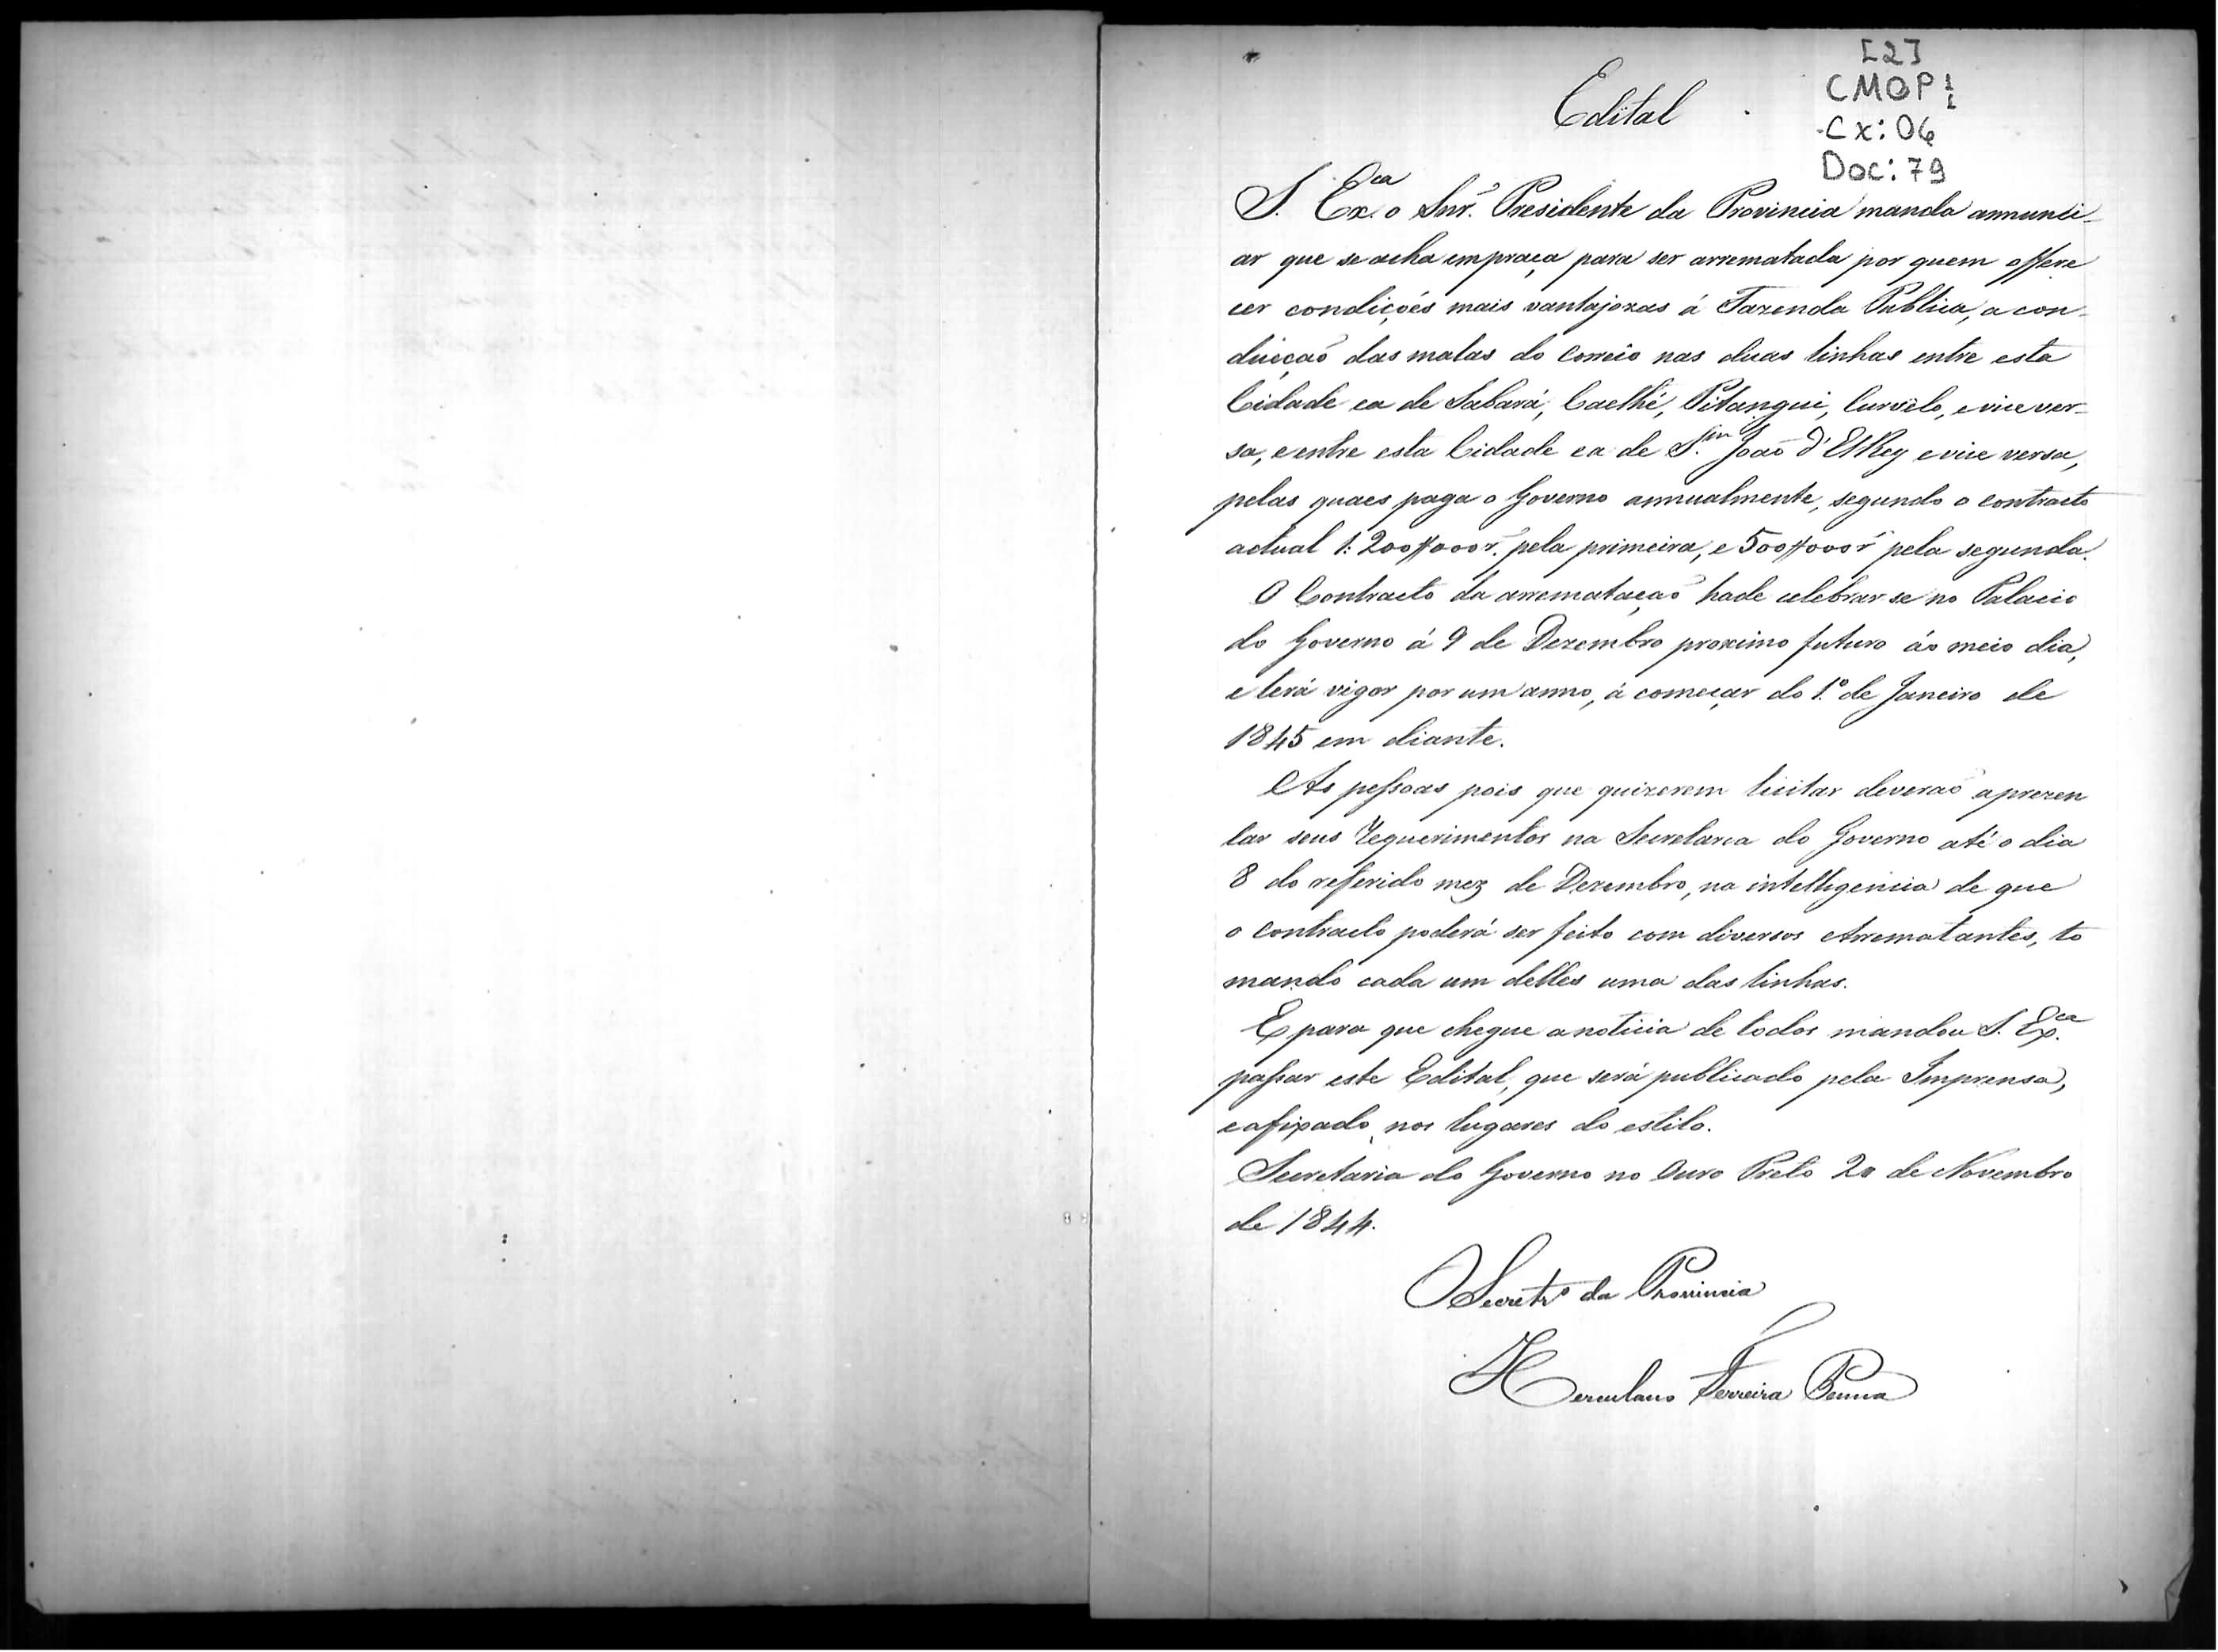 [2]
CMOP 1/1
Cx: 06
Doc: 79
Edital
S. Ex.ca o Snr. Presidente da Provincia manda annunci-
ar que se acha em praça para ser arrematada por quem offere
cer condições mais vantajozas á Fazenda Publica, a con-
ducção das malas do Correio nas duas linhas entre esta
Cidade e a de Sabará, Caethé, Pitangui, Curvêlo, e vice ver-
sa, e entre esta Cidade e a de S. João d'ElRey e vice versa,
pelas quaes paga o Governo annualmente, segundo o contracto
actual 1:200$000 r. pela primeira, e 500$000 r. pela segunda.
O Contracto da arrematação hade celebrar se no Palacio
do Governo á 9 de Dezembro proximo futuro ao meio dia,
e terá vigor por um anno, á começar do 1.º de Janeiro de
1845 em diante.
As pessoas pois que quizerem licitar deverão aprezen
tar seus requerimentos na Secretaria do Governo até o dia
8 do referido mez de Dezembro, na intelligencia de que
o contracto poderá ser feito com diversos Arrematantes, to
mando cada um delles uma das linhas.
E para que chegue a noticia de todos mandou S. Ex.ca
passar este Edital, que será publicado pela Imprensa,
e afixado nos lugares do estilo.
Secretaria do Governo no Ouro Preto 20 de Novembro
de 1844.
O Secretr.º da Provincia
Herculano Ferreira Penna